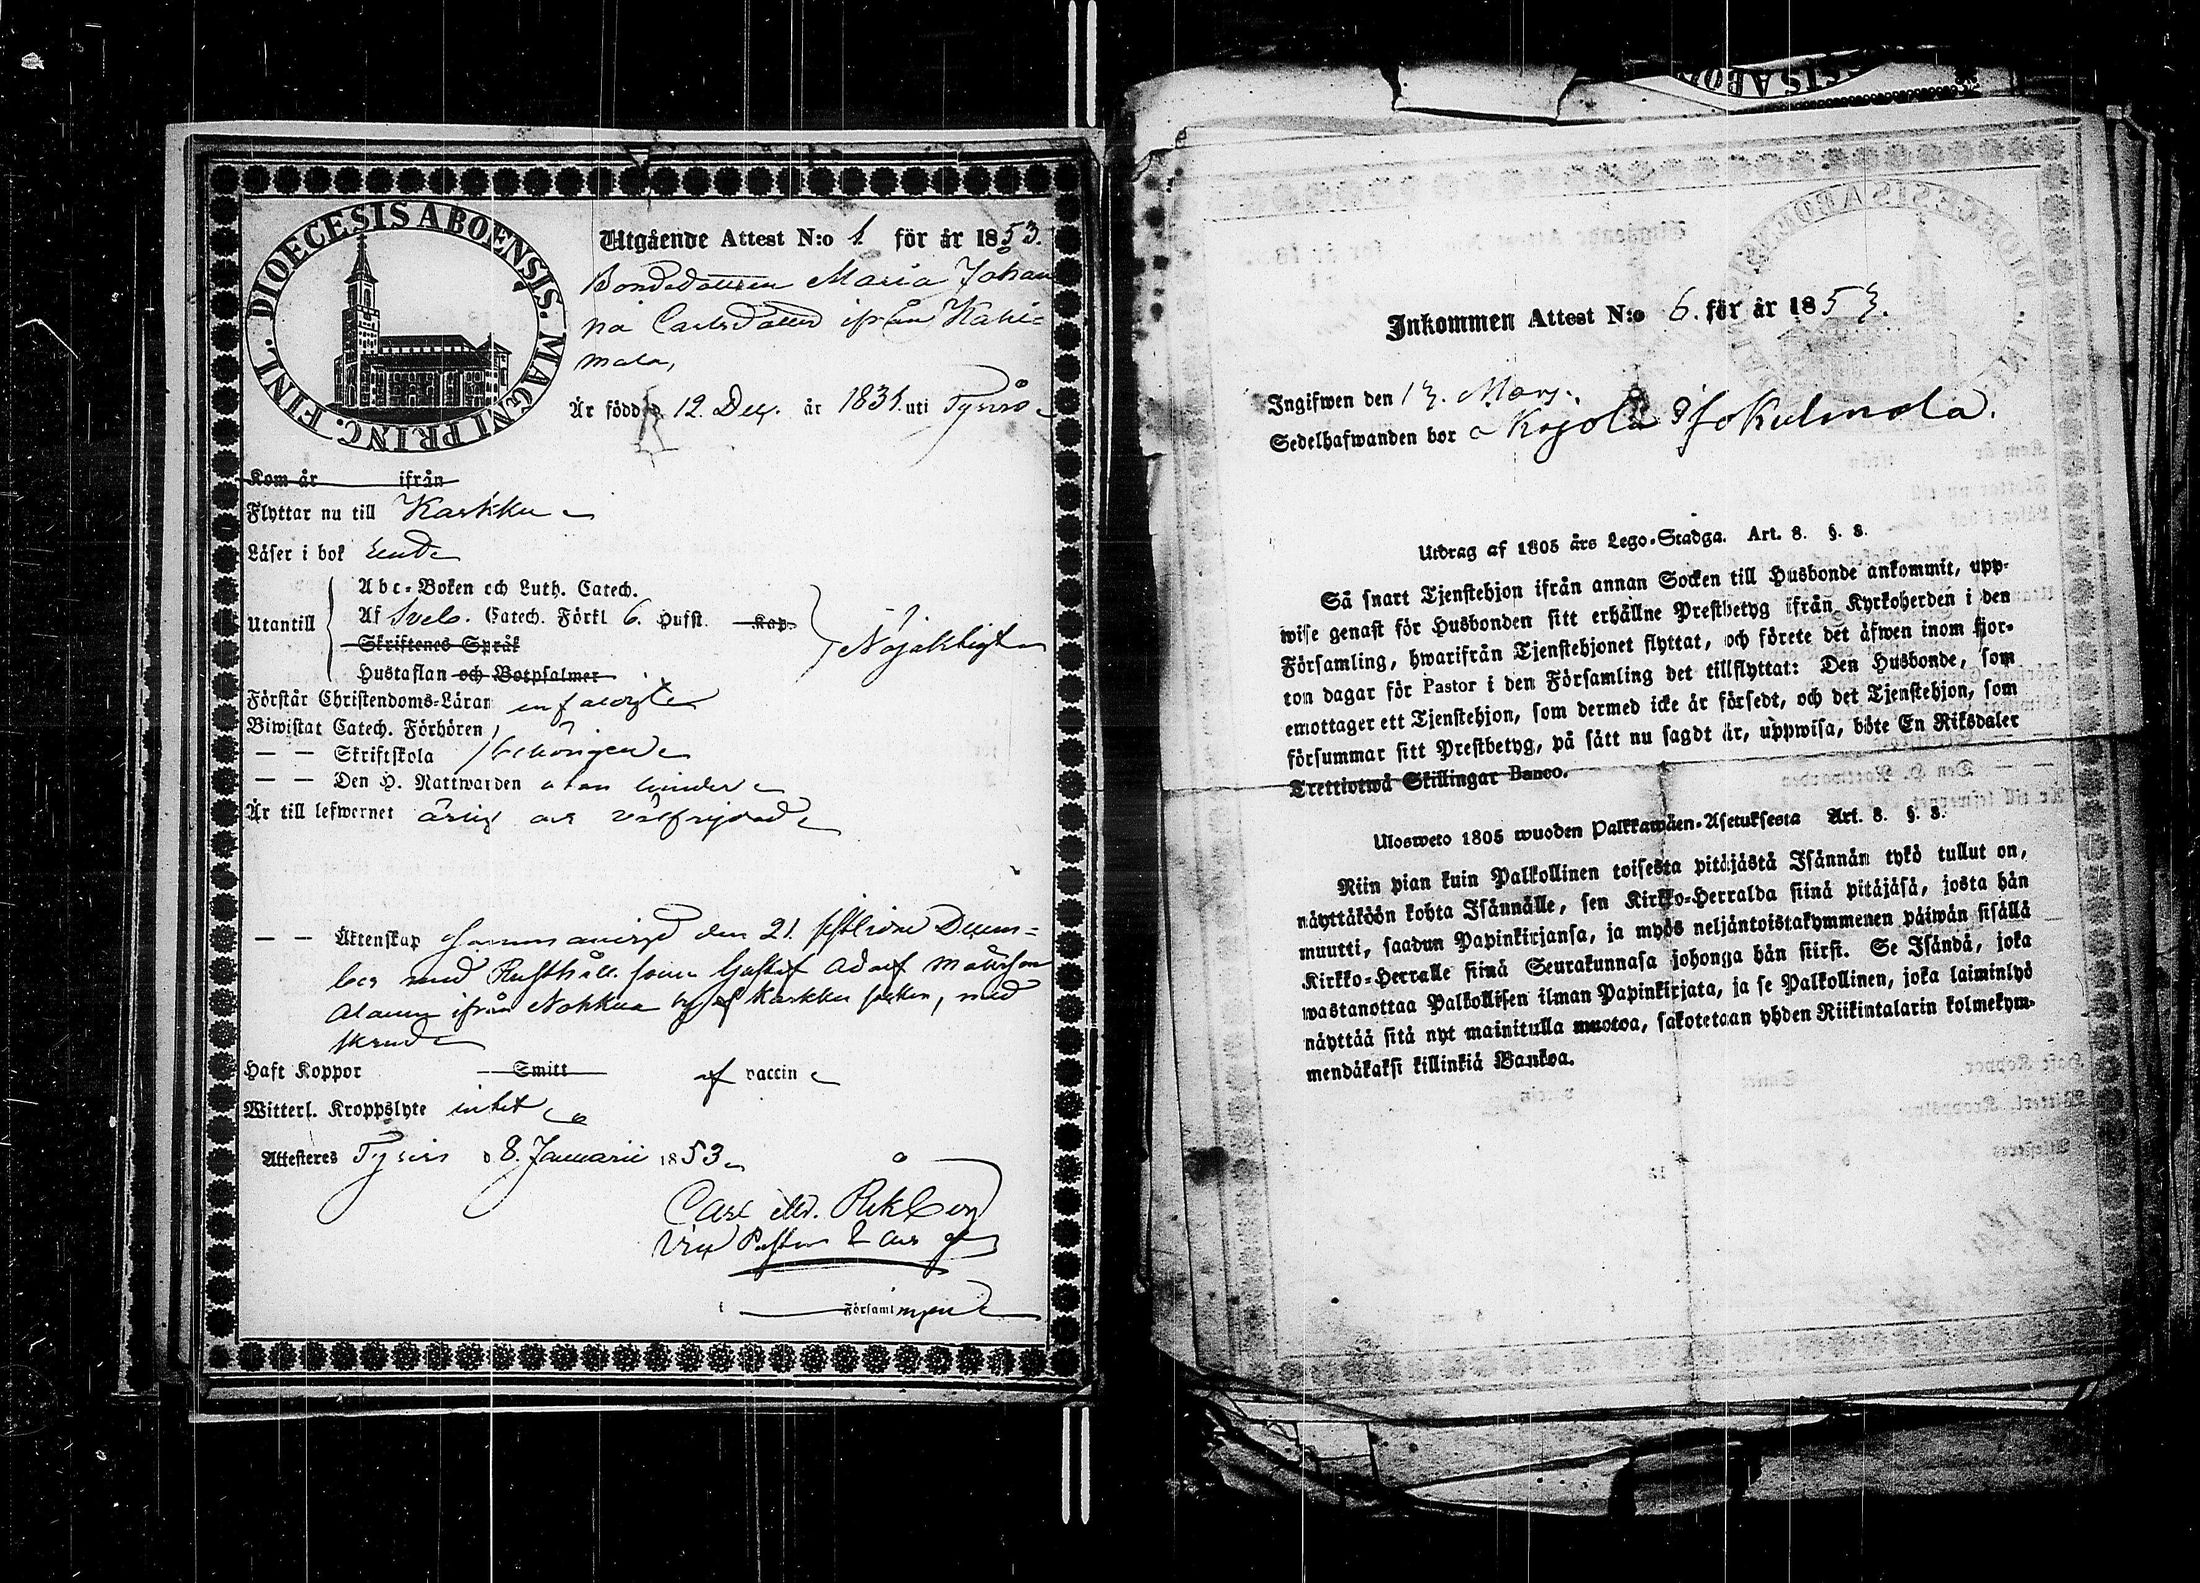 DIOECESIS ABOENSIS. MAGNI PRINC. FINL.
Utgående Attest N:o 1. för år 1853.
Bondedottren Maria Johan
na Carlsdotter ifrån
Är född 12. Dec. år 1831. uti Tyrvis
Kom år ifrån
Flyttar nu till Karkku
Läser i bok
Utantill
Abc-Boken och Luth. Catech.
Af Sveb. Catech. Förkl 6. Hufst. Kap.
Skriftenes Språk
Hustaflan och Botpsalmer
Nöjaktigt
Förstår Christendoms-Läran enfaldigt
Biwistat Catech. Förhören
— — Skriftskola behörigen
— — Den H. Nattwarden utan hinder
Är till lefwernet ärlig och välfrejdad
— — Äktenskap den 21. sistlidne Decem-
ber med Rusthåll. sonen Gustaf Adolf
ifrån Nohkua by af Karkku socken, med
Haft Koppor Smitt af vaccin
Witterl. Kroppslyte intet
Attesteras Tyrvis d. 8. Januarii 1853
Carl
Vice Pastor
i Församlingen
ISABO
Inkommen Attest N:o 6. för år 1853.
Ingifwen den 13. Mars.
Sedelhafwanden bor
Utdrag af 1805 års Lego-Stadga. Art. 8. §. 3.
Så snart Tjenstehjon ifrån annan Socken till Husbonde ankommit, upp-
wise genast för Husbonden sitt erhållne Prestbetyg ifrån Kyrkoherden i den
Församling, hwarifrån Tjenstehjonet flyttat, och förete det äfwen inom fjor-
ton dagar för Pastor i den Församling det tillflyttat: Den Husbonde, som
emottager ett Tjenstehjon, som dermed icke är försedt, och det Tjenstehjon, som
försummar sitt Prestbetyg, på sätt nu sagdt är, uppwisa, böte En Riksdaler
Trettiotwå Skillingar Banco.
Ulosweto 1805 wuoden Palkkawäen-Asetuksesta Art. 8. §. 3.
Niin pian kuin Palkollinen toisesta pitäjästä Isännän tykö tullut on,
näyttäköön kohta Isännälle, sen Kirkko-Herralda siinä pitäjäsä, josta hän
muutti, saadun Papinkirjansa, ja myös neljäntoistakymmenen päiwän sisällä
Kirkko-Herralle siinä Seurakunnasa johonga hän siirsi. Se Isändä, joka
wastanottaa Palkollisen ilman Papinkirjata, ja se Palkollinen, joka laiminlyö
näyttää sitä nyt mainitulla muotoa, sakotetaan yhden Riikintalarin kolmekym-
mendäkaksi killinkiä Bankoa.